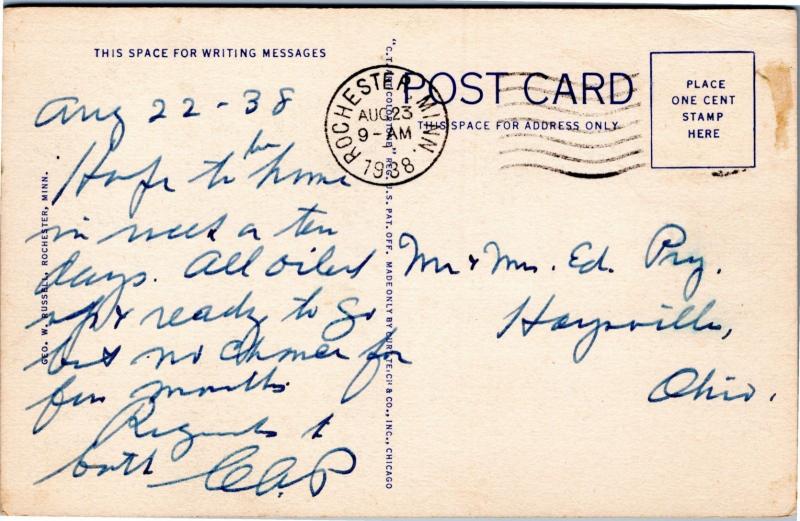 THIS SPACE FOR WRITING MESSAGES
Aug 22-38
Hope to be home
in week or ten
days. All oiled
up & ready to go
but no chance for
few months
Regards to
both CAP
GEO. W. RUSSELL, ROCHESTER, MINN.
"C.T. ART-COLORTONE" REG. U.S. PAT. OFF. MADE ONLY BY CURT TEICH & CO., INC., CHICAGO
POST CARD
THIS SPACE FOR ADDRESS ONLY
ROCHESTER, MINN.
AUG 23
9-AM
1938
PLACE
ONE CENT
STAMP
HERE
Mr & Mrs. Ed. Pry.
Haysville,
Ohio.